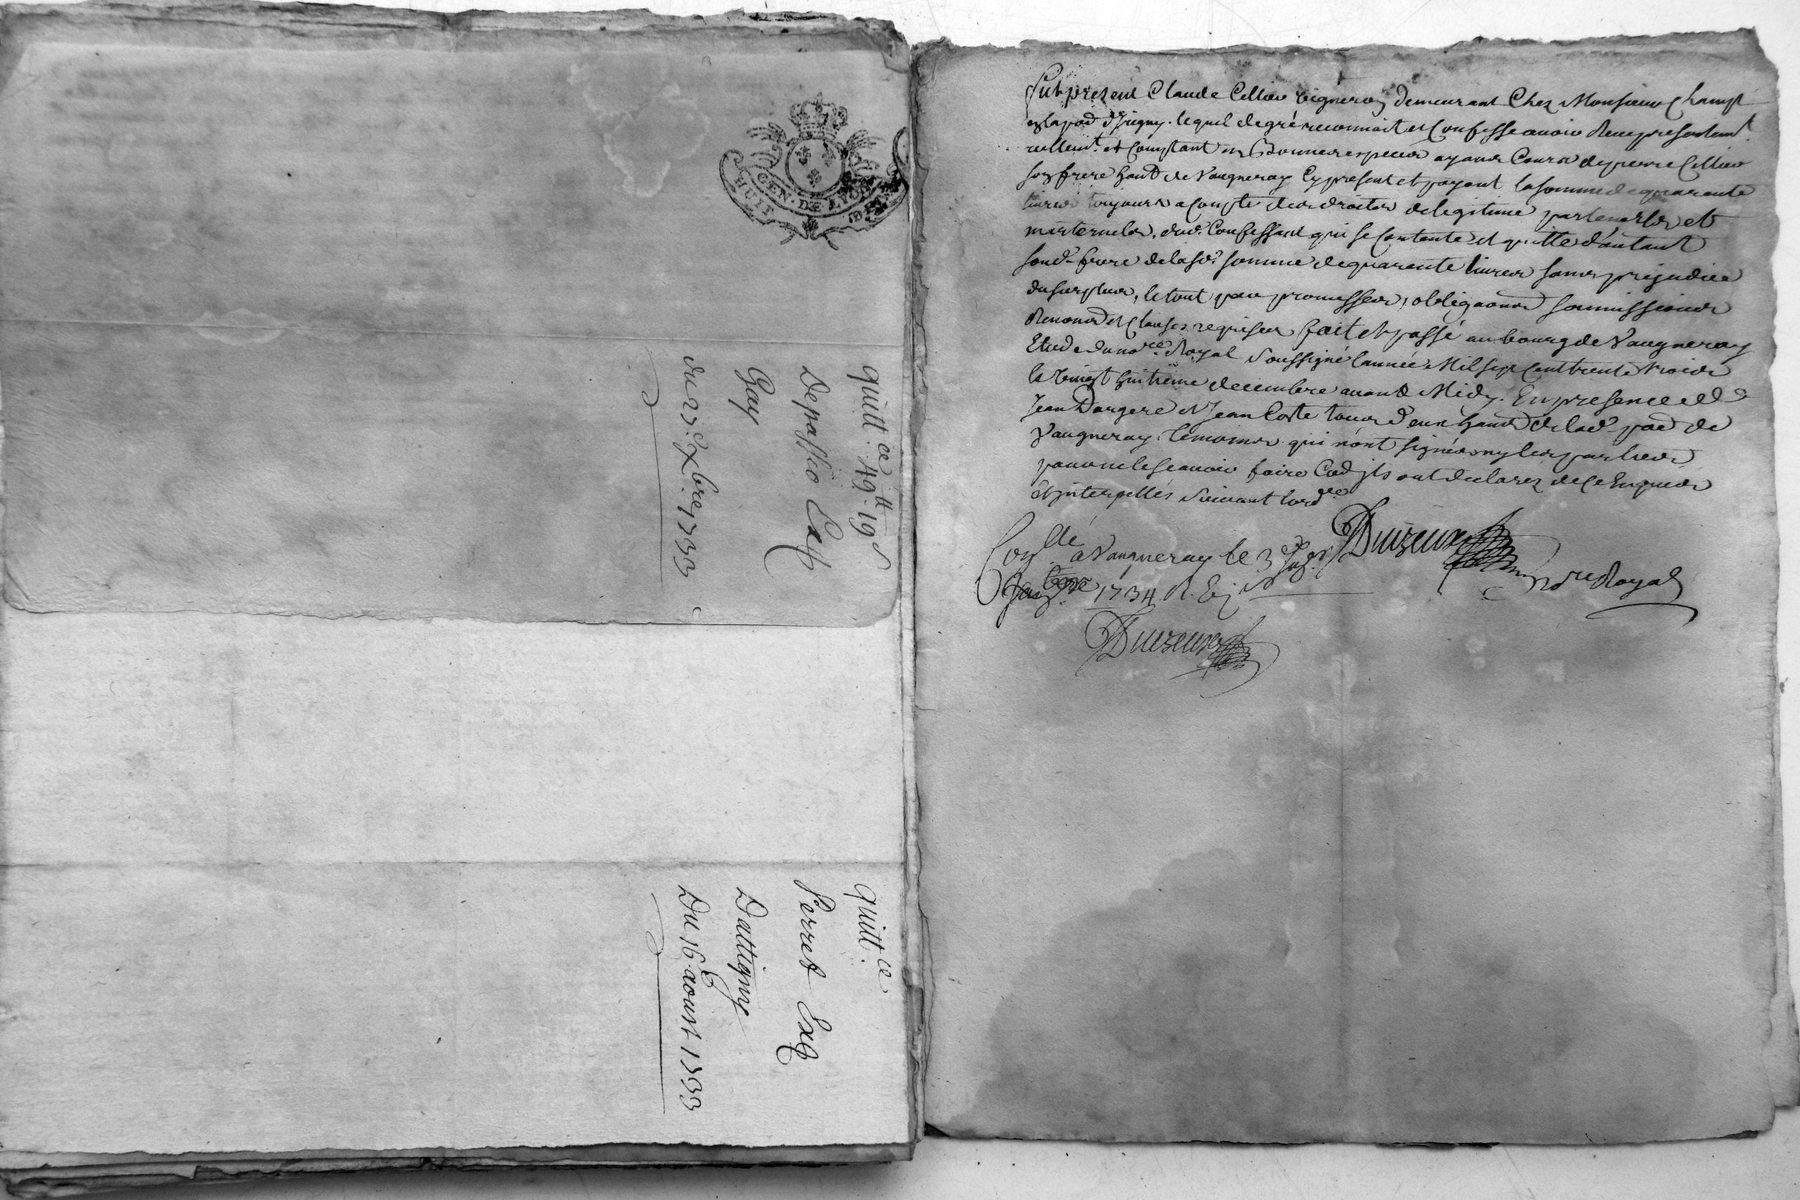 HUIT DEN
GEN. DE LYON
quitt.ce 49tt 19s
Depassio Ext
Gay
du 27 xbre 1733
quitt.ce
Perret Exq
Dattigny
Du 16 aoust 1733
Fut present Claude Cellier vigneron demeurant Chez Monsieur Champt
en la parr d'Irigny. lequel de gré reconnoit et Confesse avoir Receu presentemt
reellemt et Comptant en Bonnes especes ayant Cours de pierre Cellier
son frere habt de Vaugneray Cy present et payant la somme de quarante
livres toujours a compte de ses droites de legitime paternels et
maternels, dud. Confessant qui se Contente et quitte d'autant
sond. frere de lad. somme de quarante livres sans prejudice
du surplus, le tout par promesses, obligaons soumissions
Renonons et Clauses requises fait et passé au bourg de Vaugneray
Etude du nore Royal soussigné l'année Mil sept Cent trente trois
le vingt huitieme decembre avant Midy. En presence de
Jean Dargere et Jean Coste tous deux habts de lad. parr de
Vaugneray, temoins qui n'ont signés ny les parties
pour ne le sçavoir faire Cod. ils ont declarez de Ce Enquis
et interpellés suivant l'ordce
Duizeux
nore Royal
Conlé a Vaugneray le 3e
Janv 1734 R.
Duizeux